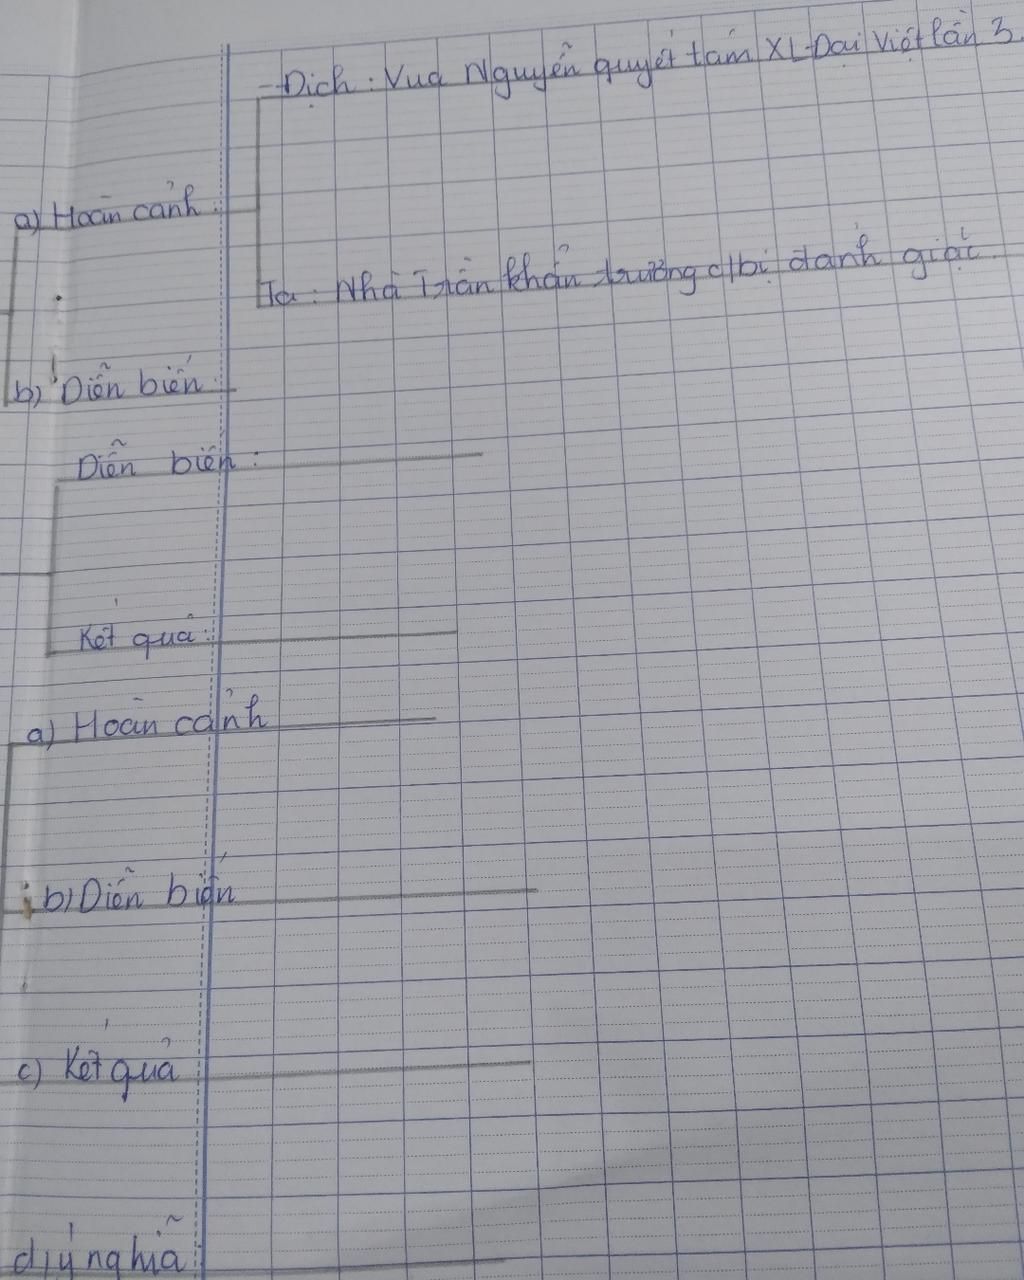 - Địch: Vua Nguyên quyết tâm XL Đại Việt lần 3.
a) Hoàn cảnh:
Ta: Nhà Trần khẩn trương c/bị đánh giặc
b) Diễn biến:
Diễn biến:
Kết quả:
a) Hoàn cảnh
b) Diễn biến
c) Kết quả
d) ý nghĩa: